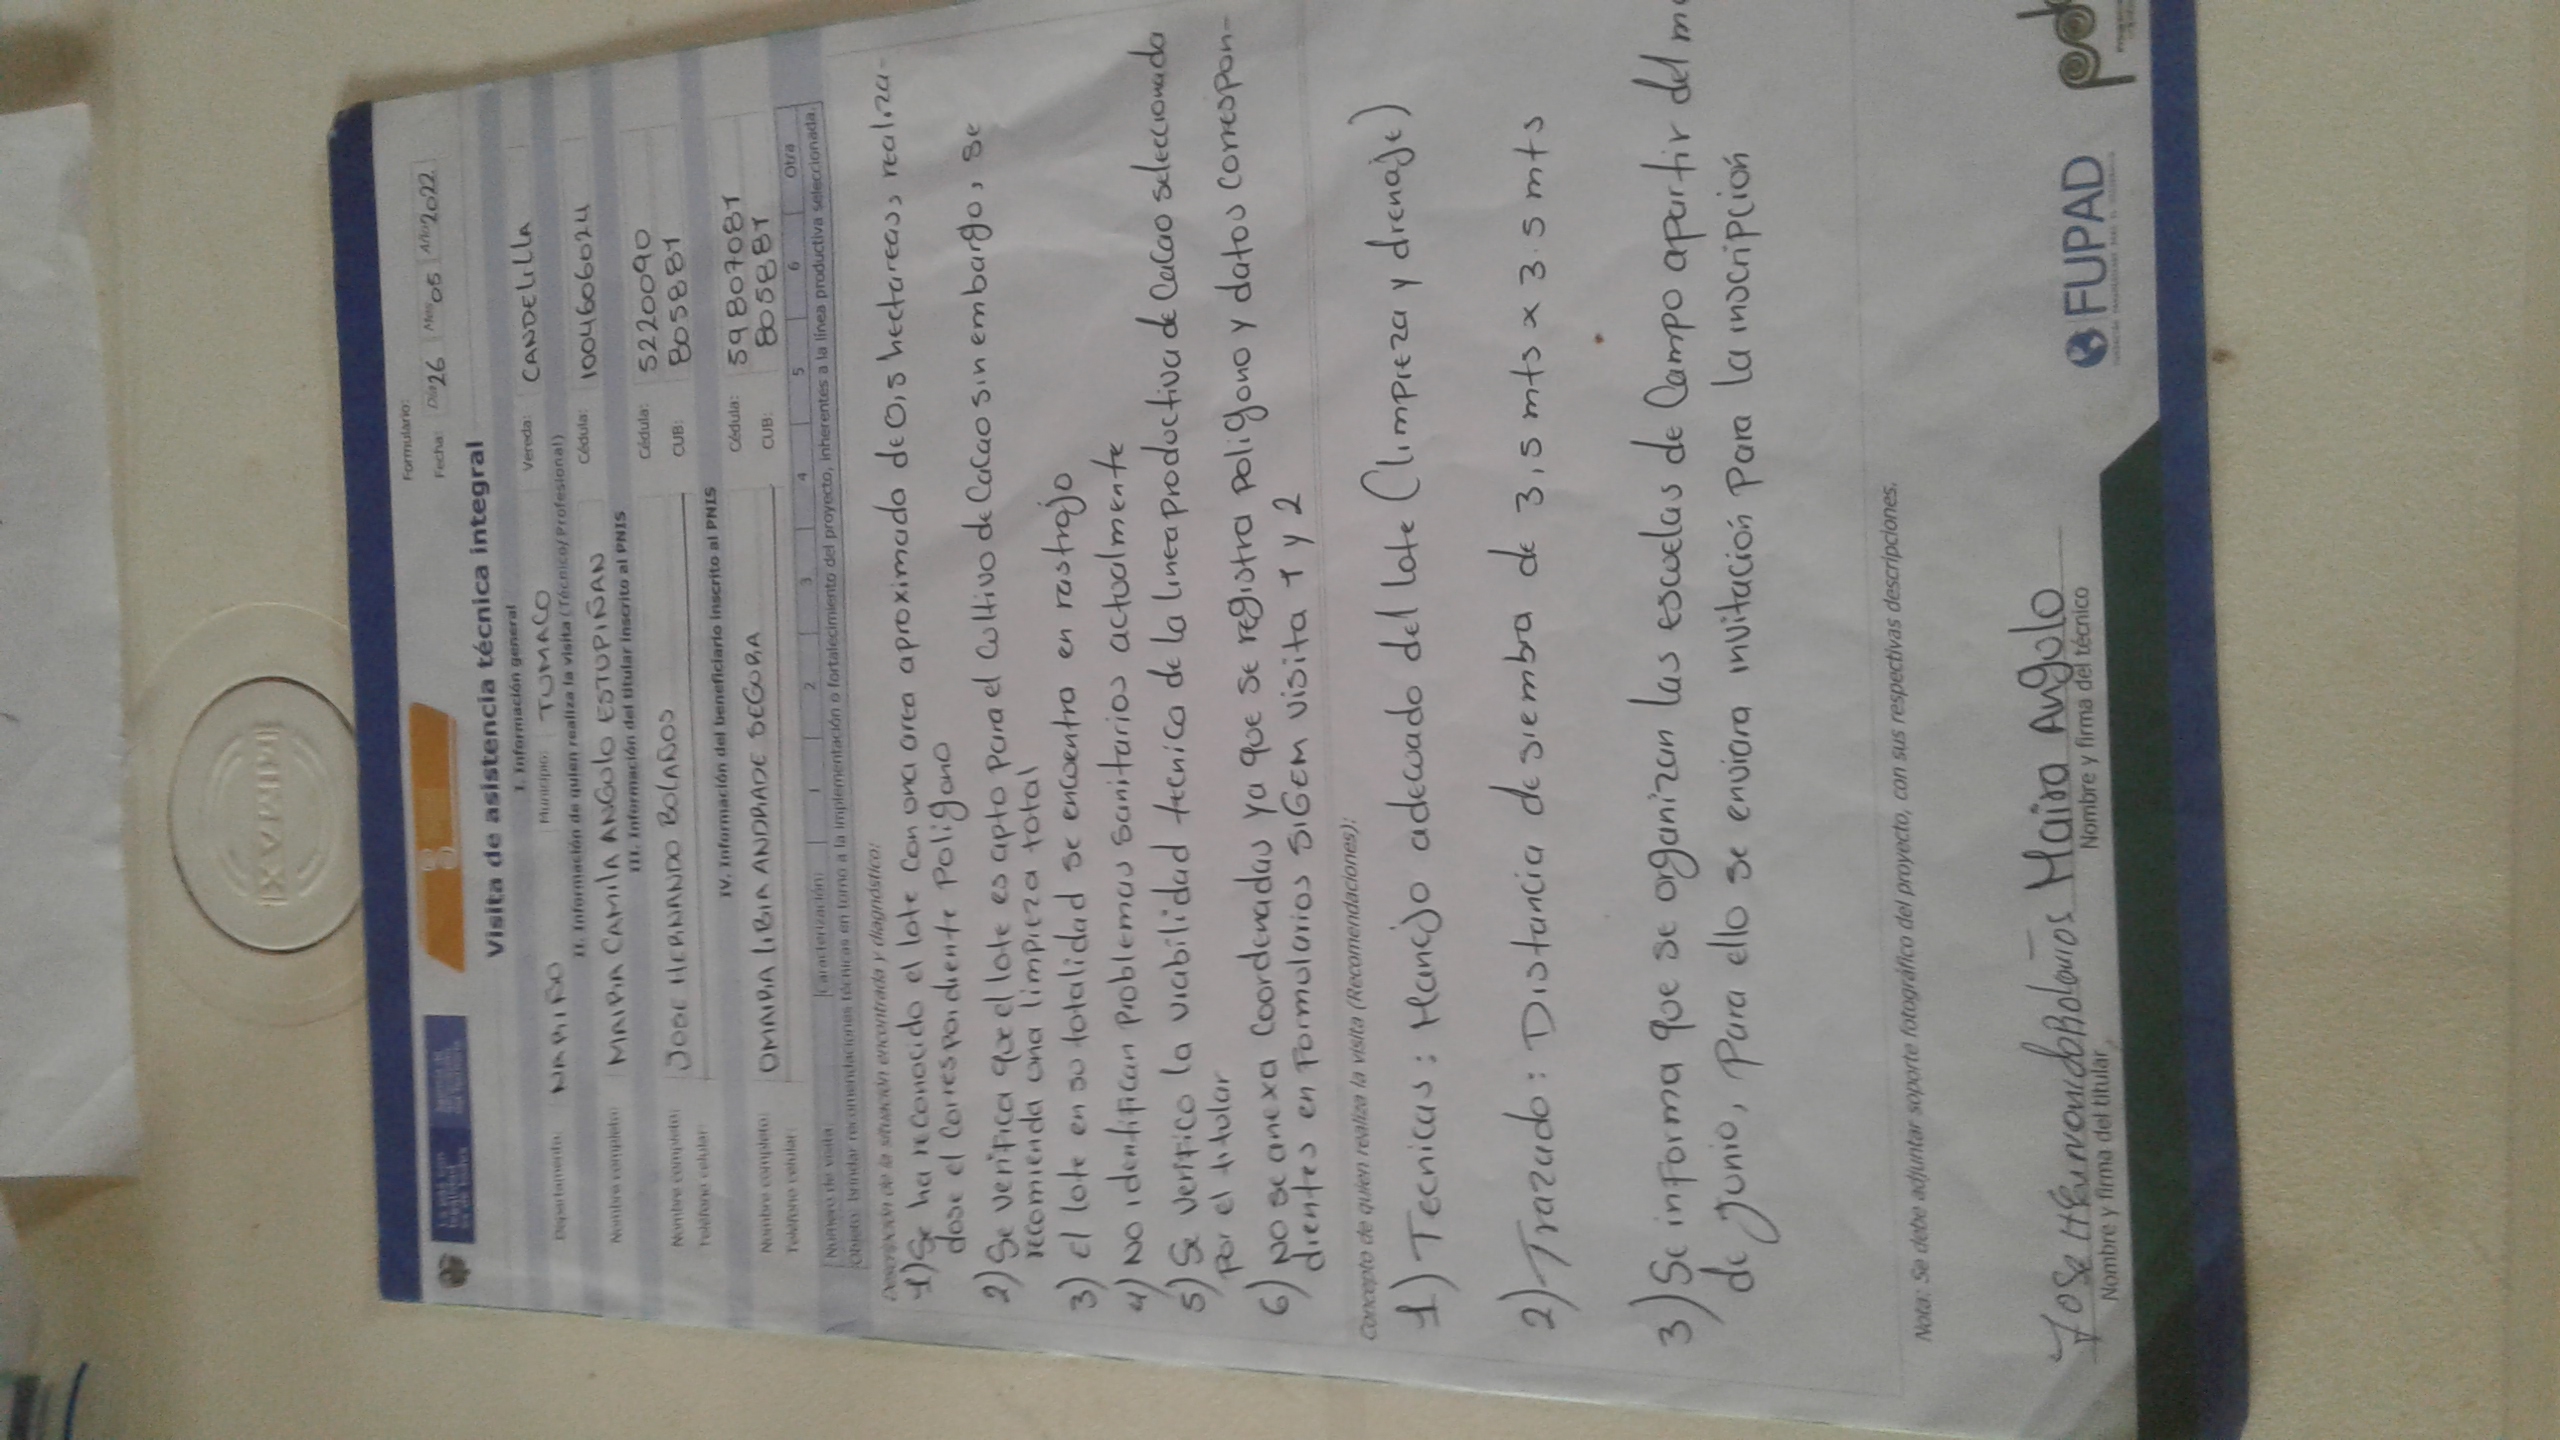 Formulario:
Fecha: Día 26 Mes 05 Año 2022
Visita de asistencia técnica integral
I. Información general
Departamento: NARIÑO Municipio: TUMACO Vereda: CANDELILLA
II. Información de quien realiza la visita (Técnico/Profesional)
Nombre completo: MAIRA CAMILA ANGULO ESTUPIÑAN Cédula: 1004606024
III. Información del titular inscrito al PNIS
Nombre completo: JOSE HERNANDO BOLAÑOS Cédula: 5220090
Teléfono celular: CUB: 805881
IV. Información del beneficiario inscrito al PNIS
Nombre completo: OMAIRA LIBIA ANDRADE SEGURA Cédula: 59807081
Teléfono celular: CUB: 805881
Número de visita: Caracterización 1 2 3 4 5 6 Otra
Objeto: brindar recomendaciones técnicas en torno a la implementación o fortalecimiento del proyecto, inherentes a la línea productiva seleccionada.
Descripción de la situación encontrada y diagnóstico:
1) Se ha reconocido el lote con una area aproximada de 0,5 hectareas, realiza-
dose el correspondiente Poligono
2) Se verifica que el lote es apto para el cultivo de cacao sin embargo, se
recomienda una limpieza total
3) El lote en su totalidad se encuentra en rastrojo
4) No identifican problemas sanitarios actualmente
5) Se verifico la viabilidad tecnica de la linea productiva de cacao seleccionada
por el titular
6) No se anexa coordenadas ya que se registra poligono y datos correspon-
dientes en formularios SIGEM visita 1 y 2
Concepto de quien realiza la visita (Recomendaciones):
1) Tecnicas: Manejo adecuado del lote (limpieza y drenaje)
2) Trazado: Distancia de siembra de 3,5 mts x 3.5 mts
3) Se informa que se organizan las escuelas de campo apartir del
de junio, Para ello se enviara invitación para la inscripción
Nota: Se debe adjuntar soporte fotográfico del proyecto, con sus respectivas descripciones.
Jose Hernando Bolaños Maira Angulo
Nombre y firma del titular Nombre y firma del técnico
FUPAD
IMMAX